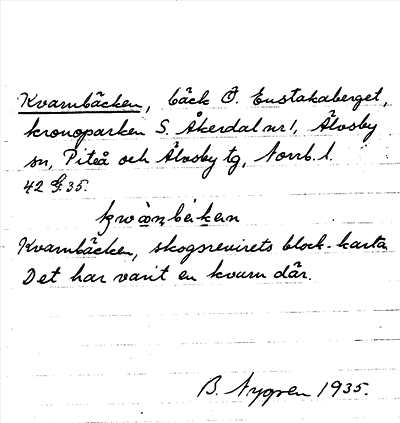 Kvarnbäcken, bäck Ö. Enstakaberget,
kronoparken S. Åkerdal nr 1, Älvsby
sn, Piteå och Älvsby tg, Norrb. l.
42 G. 35.
Kvarnbäcken, skogsrevirets block-karta
Det har varit en kvarn där.
B. Nygren 1935.